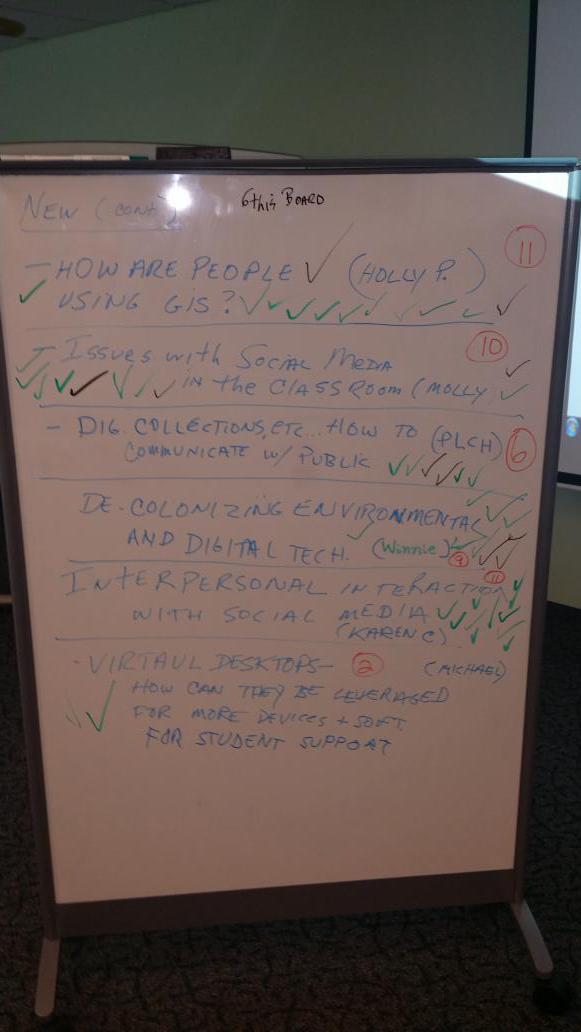 6 this BOARD
NEW (cont.)
11
- HOW ARE PEOPLE (HOLLY P.)
USING GIS?
10
- ISSUES with SOCIAL MEDIA
IN the CLASSROOM (MOLLY
- DIG. COLLECTIONS, ETC... HOW TO (PLCH) 6
COMMUNICATE W/ PUBLIC
DE-COLONIZING ENVIRONMENTAL
AND DIGITAL TECH. (Winnie) 9
INTERPERSONAL INTERACTION 11
WITH SOCIAL MEDIA
(KAREN C)
- VIRTAUL DESKTOPS - 2 (MICHAEL)
HOW CAN THEY BE LEVERAGED
FOR MORE DEVICES + SOFT.
FOR STUDENT SUPPORT